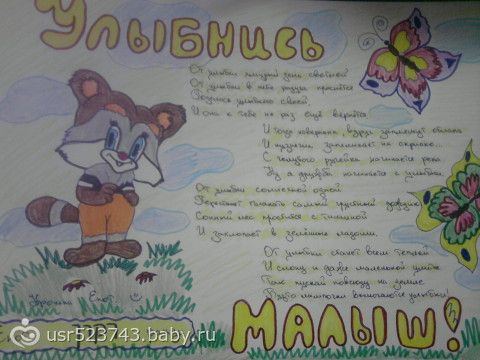 Улыбнись
От улыбки хмурый день светлей
От улыбки в небе радуга проснётся
Поделись улыбкою своей,
И она к тебе не раз ещё вернётся
И тогда наверняка, вдруг запляшут облака
И кузнечик запиликает на скрипке...
С голубого ручейка начинается река
Ну а дружба начинается с улыбки.
От улыбки солнечной одной
Перестанет плакать самый грустный дождик
Сонный лес простится с тишиной
И захлопает в зелёные ладоши.
От улыбки станет всем теплей
И слону и даже маленькой улитке
Так пускай повсюду на земле
Будто лампочки включаются улыбки!
Крошка Енот
МАЛЫШ!
usr523743.baby.ru